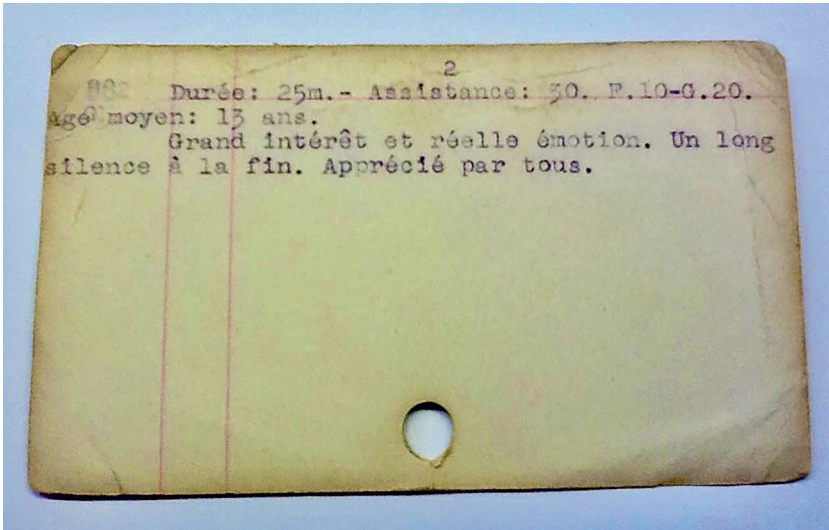 2
882 Durée: 25m.- Assistance: 30. F.10-G.20.
Agé moyen: 13 ans.
Grand intérêt et réelle émotion. Un long
silence à la fin. Apprécié par tous.